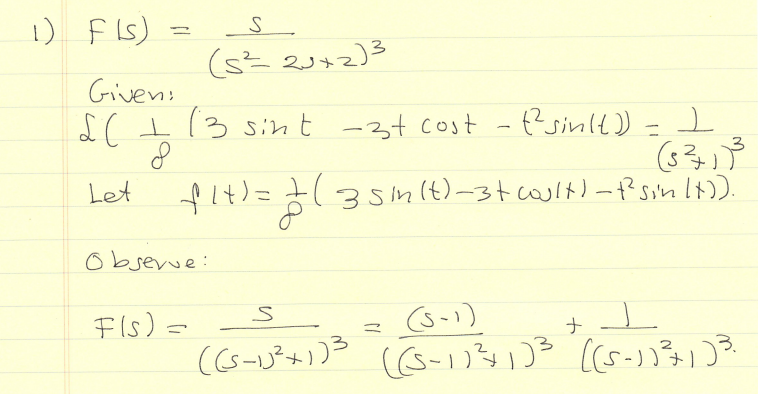 1) F(s) = s / (s² - 2s + 2)³
Given:
ℒ( 1/8 (3 sin t - 3t cos t - t² sin(t)) = 1 / (s² + 1)³
Let f(t) = 1/8 ( 3 sin(t) - 3t cos(t) - t² sin(t)).
Observe:
F(s) = s / ((s-1)² + 1)³ = (s-1) / ((s-1)² + 1)³ + 1 / ((s-1)² + 1)³.